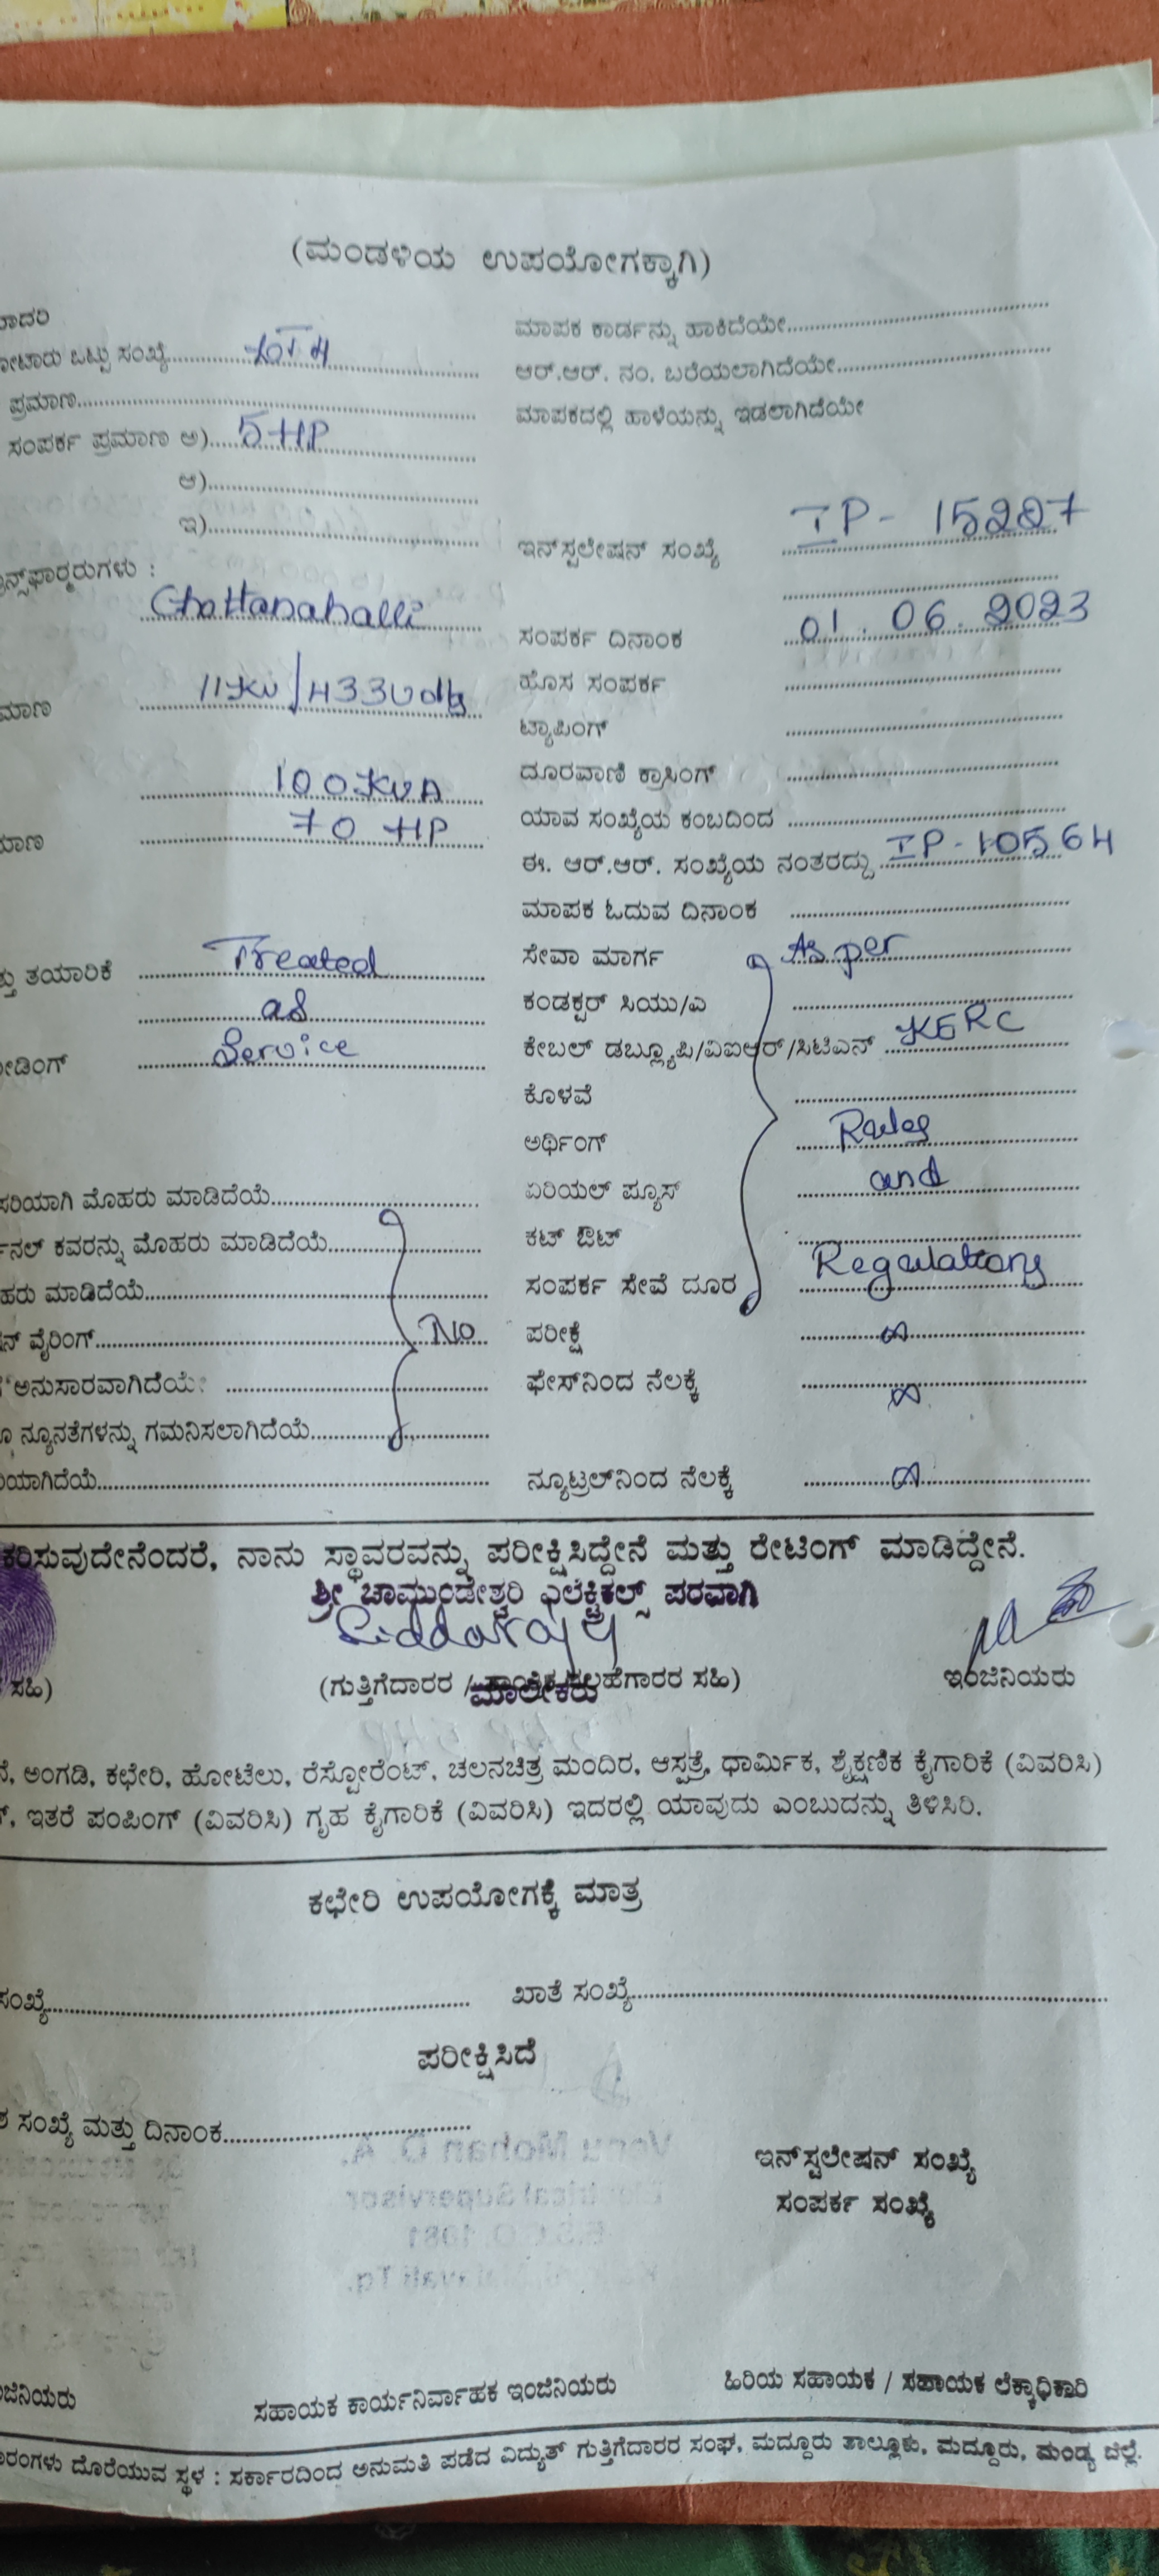 (ಮಂಡಳಿಯ ಉಪಯೋಗಕ್ಕಾಗಿ)
ಮಾಪಕ ಕಾರ್ಡನ್ನು ಹಾಕಿದೆಯೇ
ಒಟ್ಟು ಸಂಖ್ಯೆ
ಆರ್.ಆರ್. ನಂ. ಬರೆಯಲಾಗಿದೆಯೇ
ಪ್ರಮಾಣ
ಮಾಪಕದಲ್ಲಿ ಹಾಳೆಯನ್ನು ಇಡಲಾಗಿದೆಯೇ
ಸಂಪರ್ಕ ಪ್ರಮಾಣ ಅ) 5 HP
ಆ)
ಇ)
ಇನ್‌ಸ್ಪಲೇಷನ್ ಸಂಖ್ಯೆ IP - 15227
Chottanahalli
ಸಂಪರ್ಕ ದಿನಾಂಕ 01.06.2023
ಹೊಸ ಸಂಪರ್ಕ
ಟ್ಯಾಪಿಂಗ್
100 KVA ದೂರವಾಣಿ ಕ್ರಾಸಿಂಗ್
70 HP ಯಾವ ಸಂಖ್ಯೆಯ ಕಂಬದಿಂದ
ಈ. ಆರ್.ಆರ್. ಸಂಖ್ಯೆಯ ನಂತರದ್ದು IP - 10564
ಮಾಪಕ ಓದುವ ದಿನಾಂಕ
ತಯಾರಿಕೆ Treated ಸೇವಾ ಮಾರ್ಗ As per
as ಕಂಡಕ್ಟರ್ ಸಿಯು/ಎ
Service ಕೇಬಲ್ ಡಬ್ಲ್ಯೂಪಿ/ವಿಐಆರ್/ಸಿಟಿಎನ್ KERC
ಕೊಳವೆ
ಅರ್ಥಿಂಗ್ Rules
ಸರಿಯಾಗಿ ಮೊಹರು ಮಾಡಿದೆಯೆ ಏರಿಯಲ್ ಪ್ಯೂಸ್ and
ಕವರನ್ನು ಮೊಹರು ಮಾಡಿದೆಯೆ ಕಟ್ ಔಟ್
ಮಾಡಿದೆಯೆ ಸಂಪರ್ಕ ಸೇವೆ ದೂರ Regulations
ವೈರಿಂಗ್ No ಪರೀಕ್ಷೆ ∞
ಅನುಸಾರವಾಗಿದೆಯೆ ಫೇಸ್‌ನಿಂದ ನೆಲಕ್ಕೆ ∞
ನ್ಯೂನತೆಗಳನ್ನು ಗಮನಿಸಲಾಗಿದೆಯೆ
ನ್ಯೂಟ್ರಲ್‌ನಿಂದ ನೆಲಕ್ಕೆ ∞
ನಾನು ಸ್ಥಾವರವನ್ನು ಪರೀಕ್ಷಿಸಿದ್ದೇನೆ ಮತ್ತು ರೇಟಿಂಗ್ ಮಾಡಿದ್ದೇನೆ.
ಶ್ರೀ ಚಾಮುಂಡೇಶ್ವರಿ ಎಲೆಕ್ಟ್ರಿಕಲ್ಸ್ ಪರವಾಗಿ
ಸಹಿ) (ಗುತ್ತಿಗೆದಾರರ / ಸಹಿ) ಇಂಜಿನಿಯರು
ಮಾಲೀಕರು
ಅಂಗಡಿ, ಕಛೇರಿ, ಹೋಟೆಲು, ರೆಸ್ಟೋರೆಂಟ್, ಚಲನಚಿತ್ರ ಮಂದಿರ, ಆಸ್ಪತ್ರೆ, ಧಾರ್ಮಿಕ, ಶೈಕ್ಷಣಿಕ ಕೈಗಾರಿಕೆ (ವಿವರಿಸಿ)
ಇತರೆ ಪಂಪಿಂಗ್ (ವಿವರಿಸಿ) ಗೃಹ ಕೈಗಾರಿಕೆ (ವಿವರಿಸಿ) ಇದರಲ್ಲಿ ಯಾವುದು ಎಂಬುದನ್ನು ತಿಳಿಸಿರಿ.
ಕಛೇರಿ ಉಪಯೋಗಕ್ಕೆ ಮಾತ್ರ
ಸಂಖ್ಯೆ ಖಾತೆ ಸಂಖ್ಯೆ
ಪರೀಕ್ಷಿಸಿದೆ
ಸಂಖ್ಯೆ ಮತ್ತು ದಿನಾಂಕ
ಇನ್‌ಸ್ಟಲೇಷನ್ ಸಂಖ್ಯೆ
ಸಂಪರ್ಕ ಸಂಖ್ಯೆ
ಸಹಾಯಕ ಕಾರ್ಯನಿರ್ವಾಹಕ ಇಂಜಿನಿಯರು ಹಿರಿಯ ಸಹಾಯಕ / ಸಹಾಯಕ ಲೆಕ್ಕಾಧಿಕಾರಿ
ದೊರೆಯುವ ಸ್ಥಳ : ಸರ್ಕಾರದಿಂದ ಅನುಮತಿ ಪಡೆದ ವಿದ್ಯುತ್ ಗುತ್ತಿಗೆದಾರರ ಸಂಘ, ಮದ್ದೂರು ತಾಲ್ಲೂಕು, ಮದ್ದೂರು, ಮಂಡ್ಯ ಜಿಲ್ಲೆ.